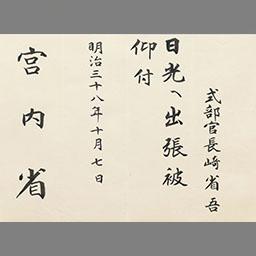 式部官長崎省吾
日光ヘ出張被
仰付
明治三十八年十月七日
宮内省